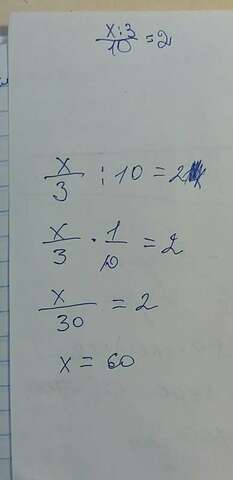 x:3/10 = 2
x/3 : 10 = 2
x/3 · 1/10 = 2
x/30 = 2
x = 60